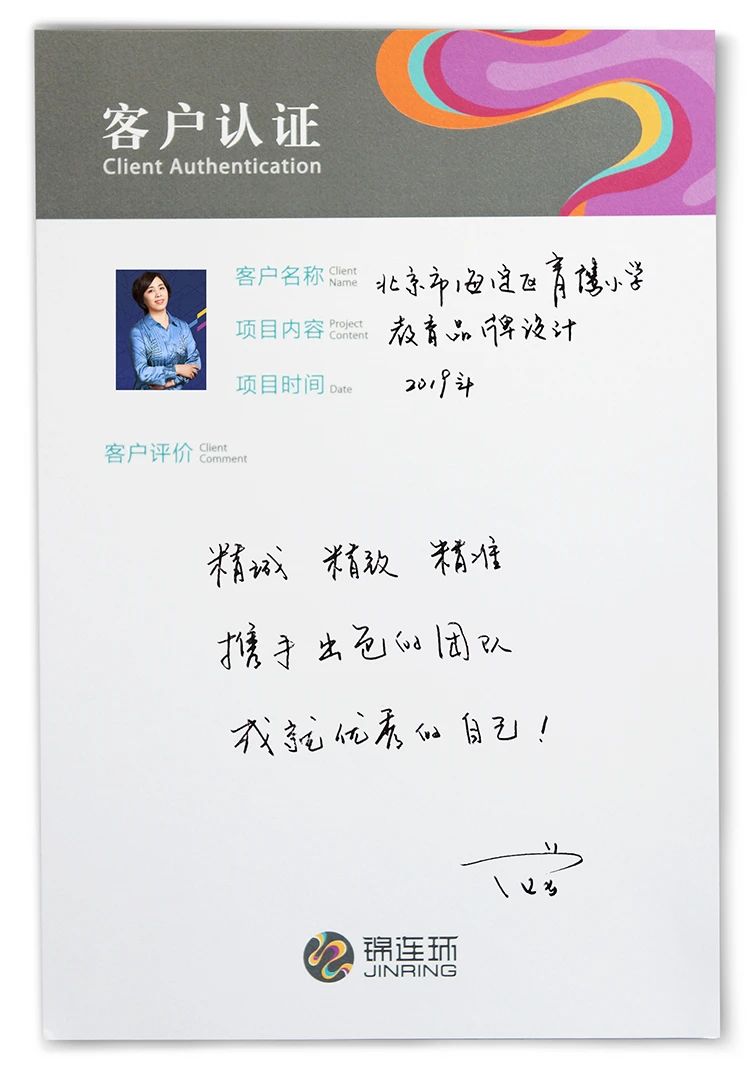 客户认证
Client Authentication
客户名称 Client Name 北京市海淀区育鹰小学
项目内容 Project Content 教育品牌设计
项目时间 Date 2019年
客户评价 Client Comment
精诚 精致 精准
携手出色的团队
成就优秀的自己!
锦连环
JINRING